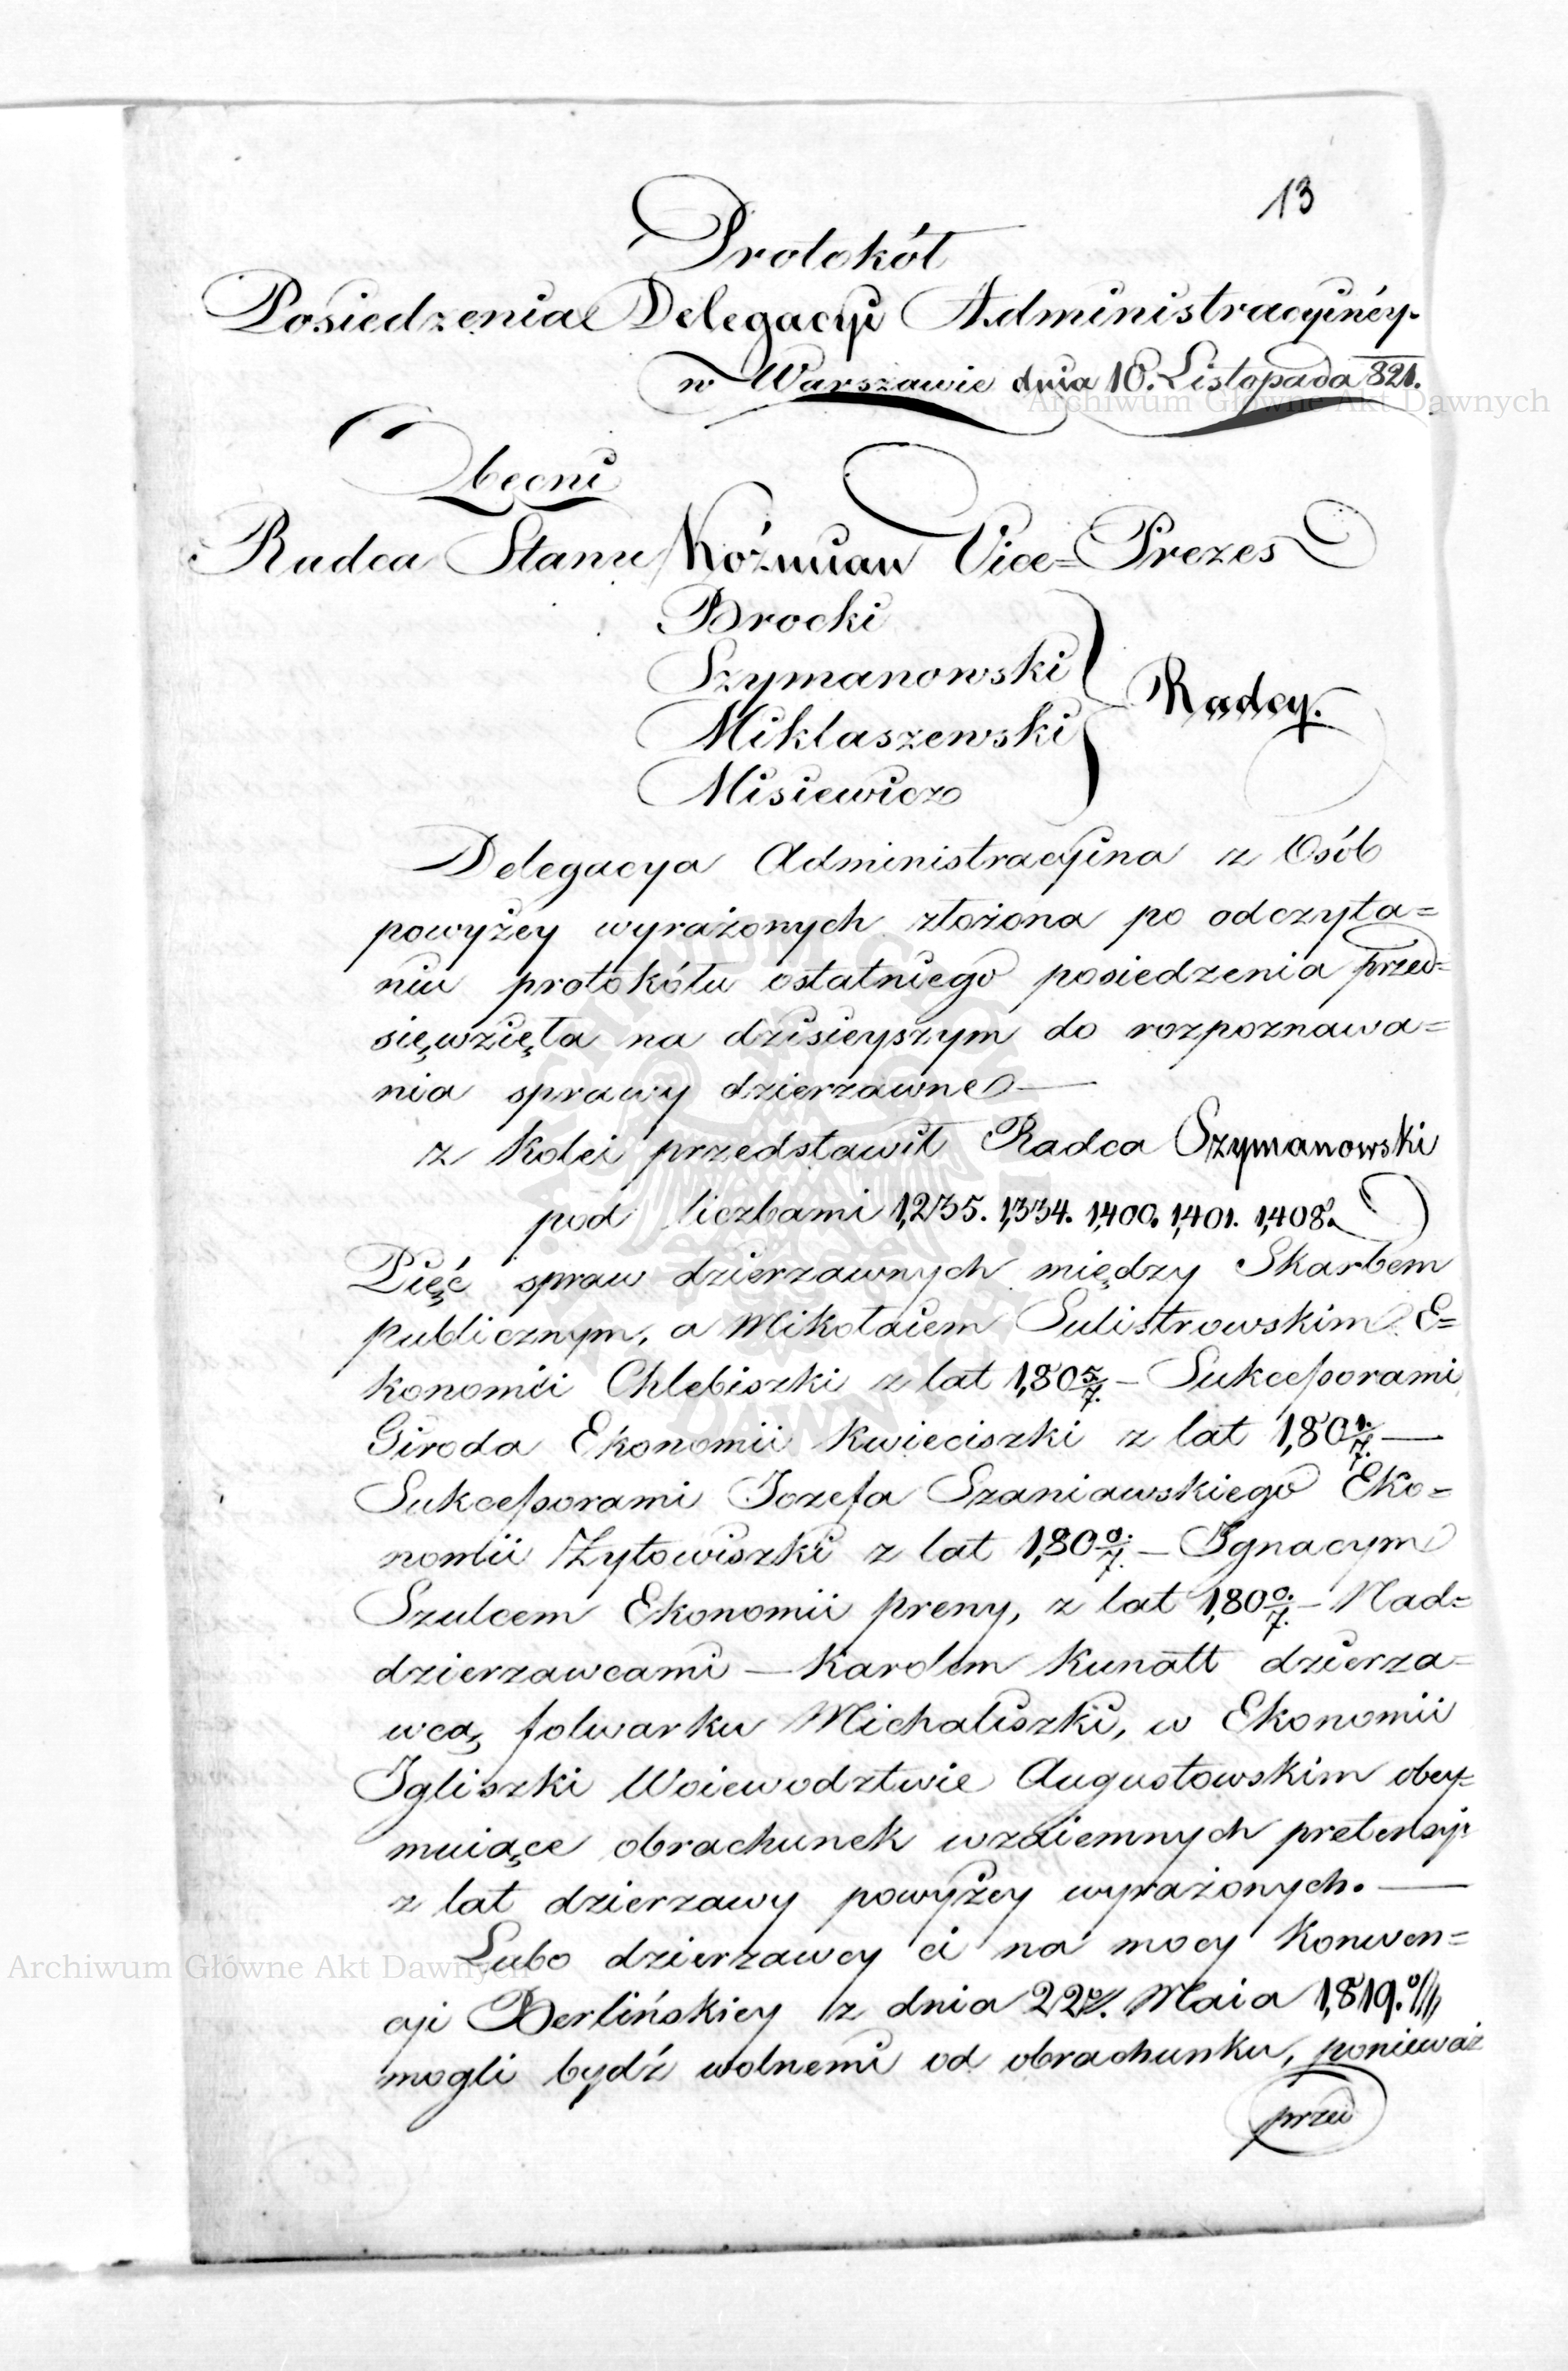 13
Protokół
Posiedzenia Delegacyi Administracyinéy
w Warszawie dnia 10. Listopada 821.
Obecni
Radca Stanu Koźmian Vice=Prezes
Brocki
Szymanowski
Miklaszewski
Misiewicz
Radcy.
Delegacya Administracyina z Osób
powyżey wyrażonych złożona po odczyta=
niu protokółu ostatniego posiedzenia przed=
sięwzięła na dzisieyszym do rozpoznawa=
nia sprawy dzierzawne —
z Kolei przedstawił Radca Szymanowski
pod liczbami 1,235. 1,334. 1,400. 1,401. 1,408.
Pięć spraw dzierzawnych między Skarbem
publicznym, a Mikołaiem Sulistrowskim E=
konomii Chlebiszki z lat 1,80 5/7. — Sukcessorami
Giroda Ekonomii Kwieciszki z lat 1,80 1/7. —
Sukcessorami Jozefa Szaniawskiego Eko=
nomii Żytowiszki z lat 1,80 0/7. — Ignacym
Szulcem Ekonomii preny, z lat 1,80 0/7. — Nad=
dzierzawcami — Karolem Kunatt dzierza=
wcą folwarku Michaliszki, w Ekonomii
Igliszki Woiewodztwie Augustowskim obey=
muiące obrachunek wzaiemnych pretensyi
z lat dzierzawy powyżey wyrażonych. —
Lubo dzierzawcy ci na mocy Konwen=
cyi Berlińskiey z dnia 22. Maia 1,819.
mogli bydź wolnemi od obrachunku, ponieważ
przed
Archiwum Główne Akt Dawnych
Archiwum Główne Akt Dawnych